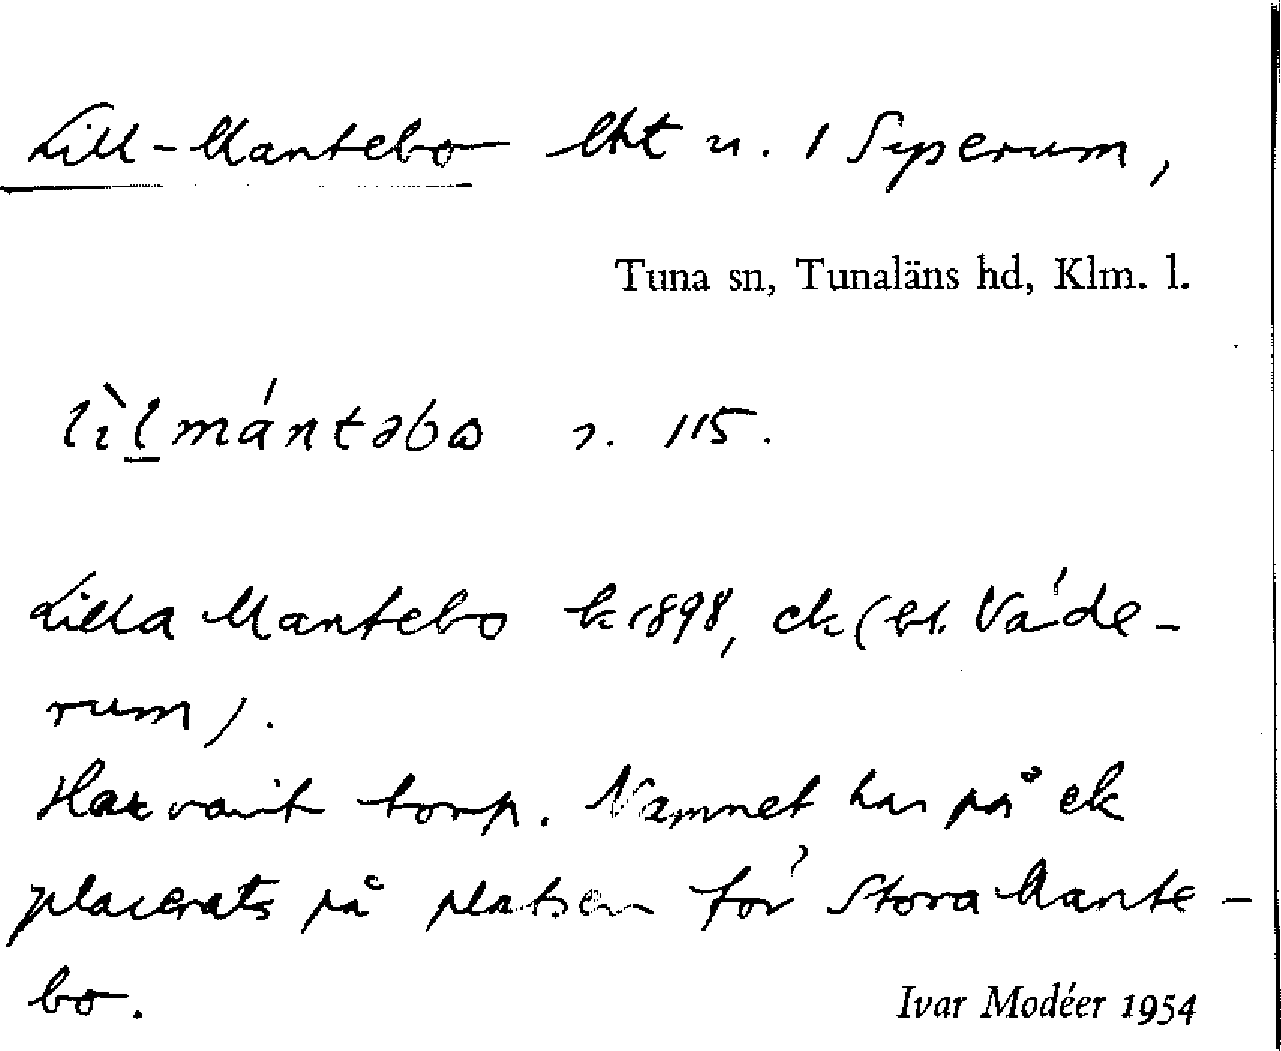 Lill-Mantebo lht u. 1 Syserum,
Tuna sn, Tunaläns hd, Klm. l.
lìlmántəbω 115.
Lilla Mantebo k 1898, ek (bl. Väde-
rum).
Har varit torp. Namnet har på ek
placerats på platsen för Stora Mante-
bo.
Ivar Modéer 1954